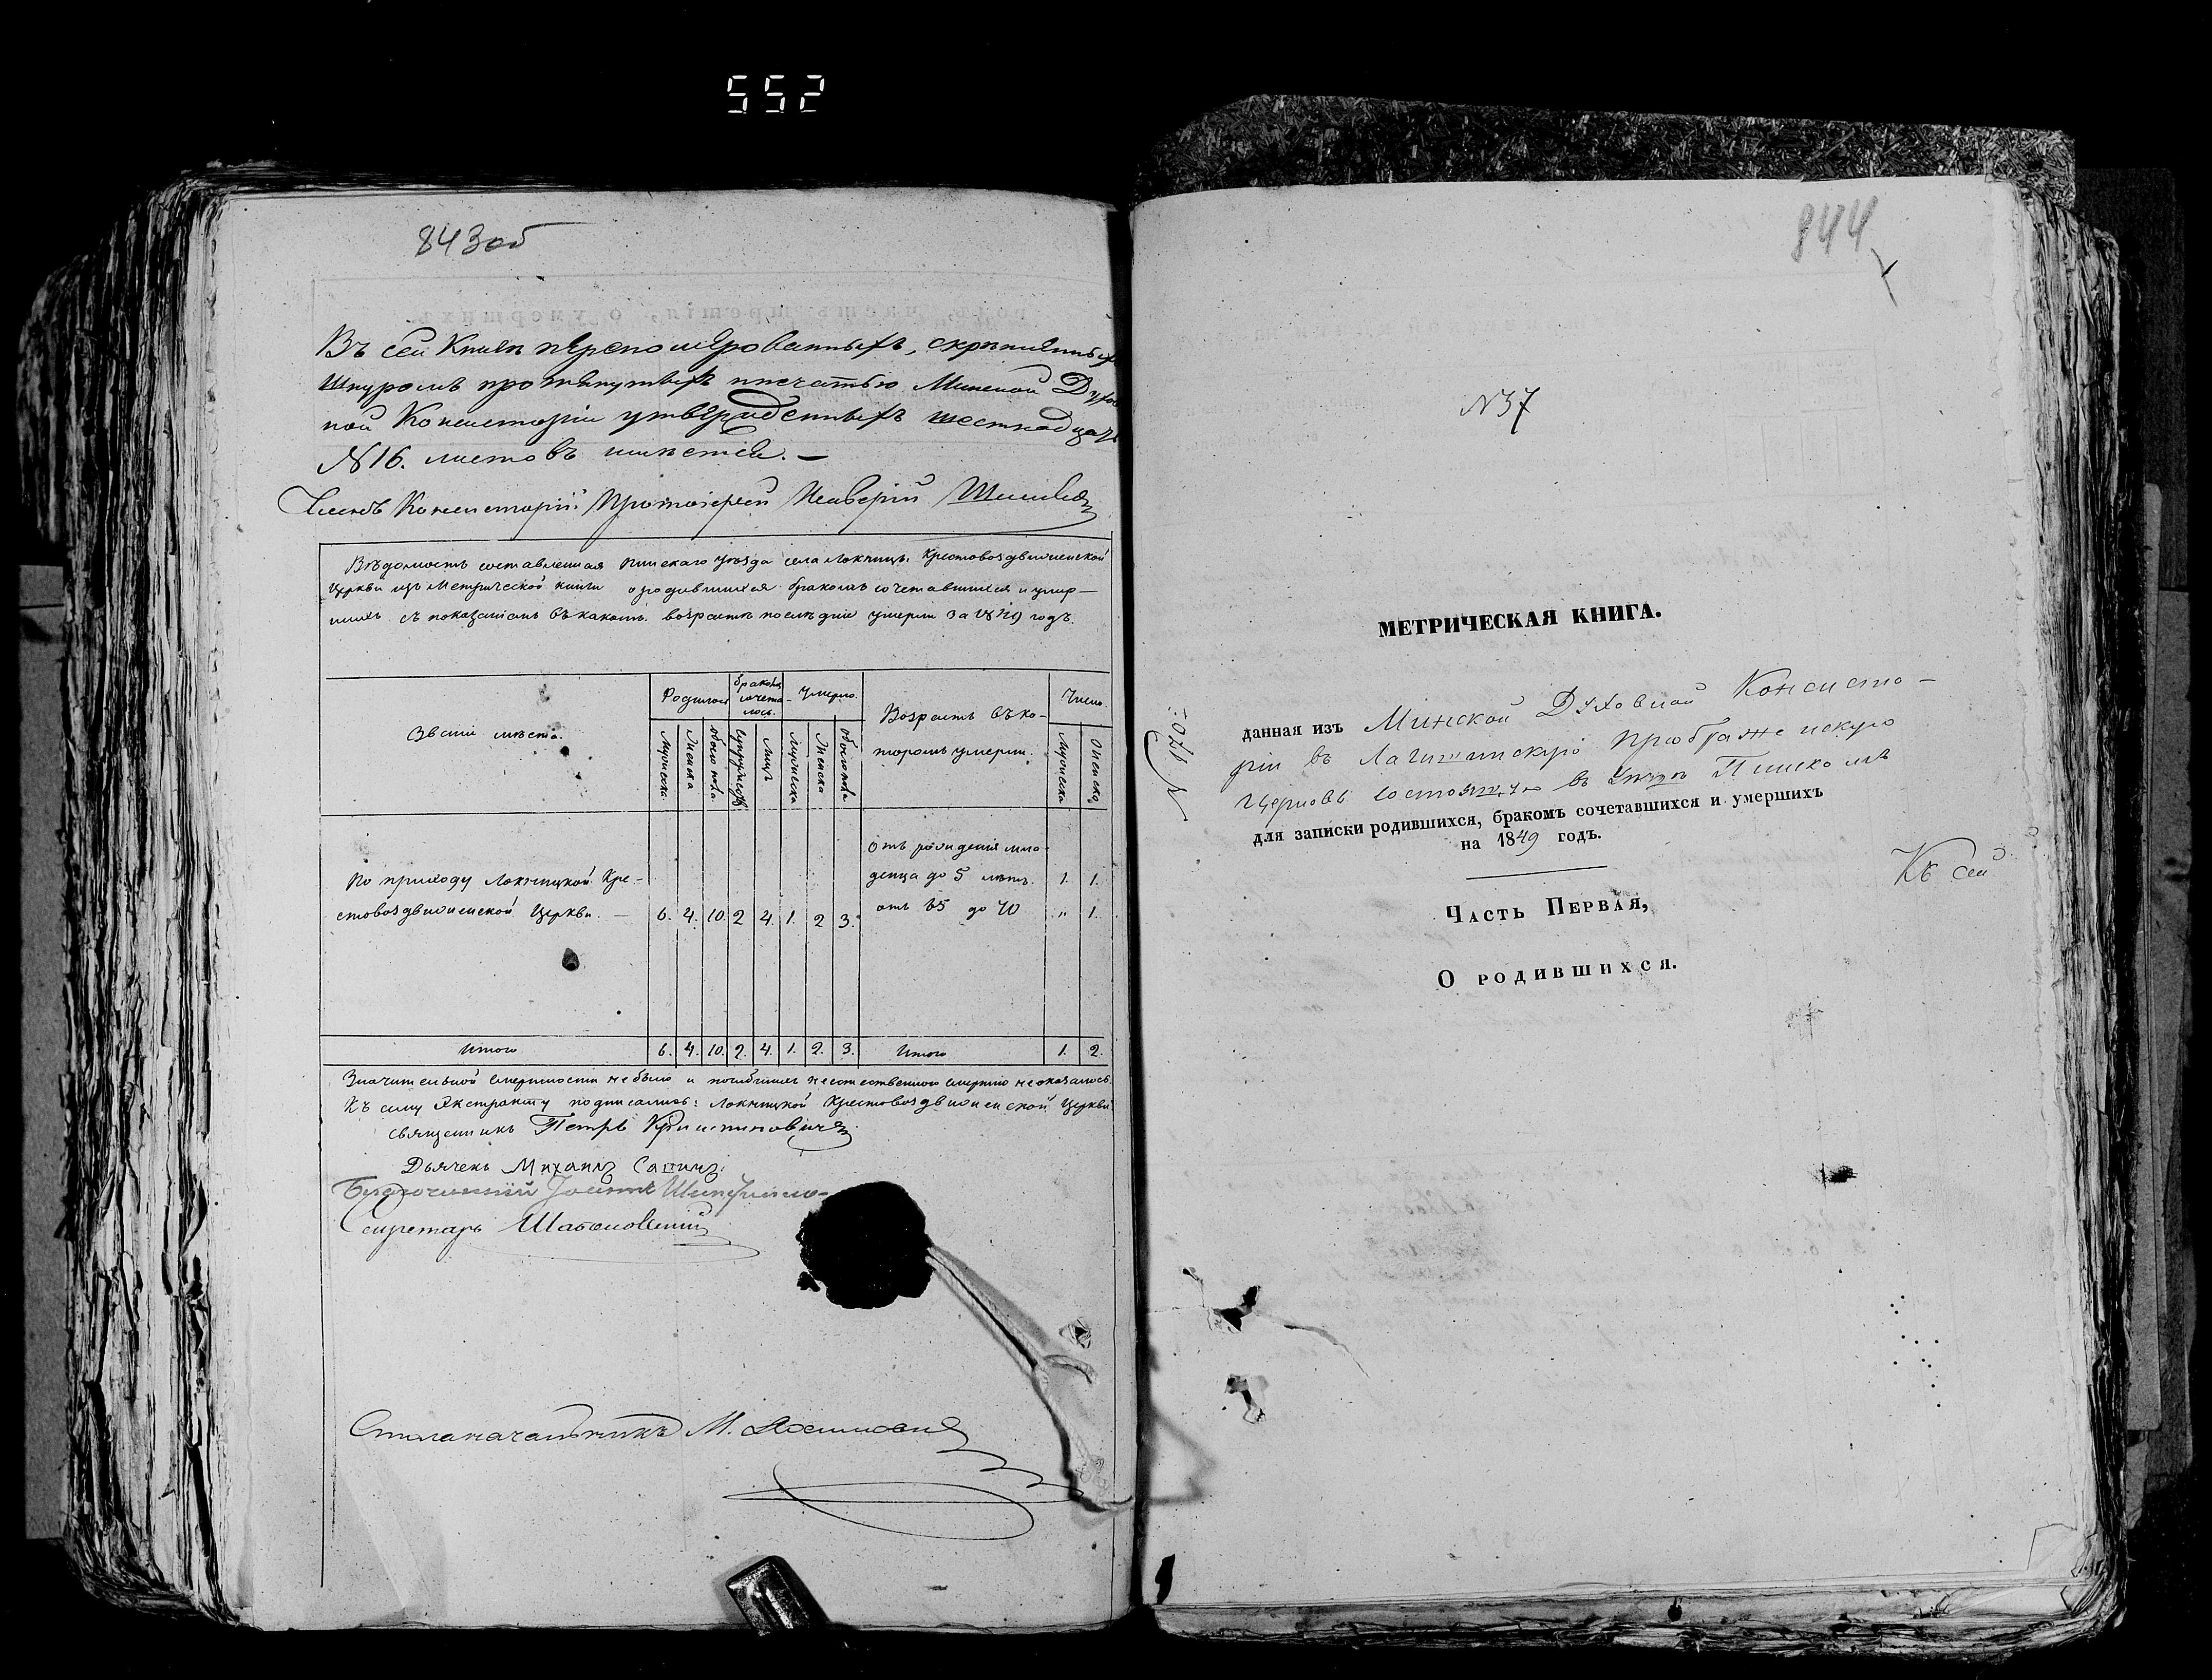 552
843об
Въ сей Книгѣ перенумерованныхъ, скрѣпленныхъ
Шнуромъ протянутыхъ печатью Минской Духов
ной Консисторіи утвержденныхъ шестнадцать
N16. листовъ имѣется. —
Членъ Консисторіи Протоіерей
Вѣдомость составленная Пинскаго уѣзда села Локницъ. Крестовоздвиженской
Церкви изъ Метрической книги о родившихся бракомъ сочетавшихся и умер—
шихъ съ показаніемъ въ какомъ возрастѣ послѣдніе умерли за 1849 годъ.
Званіе мѣста.
Родилось
бракомъ сочета- лось.
Умерло.
Возрастъ въ ко-
торомъ умерли.
Число.
Мужеска
Женска
обоего пола
супружествъ
Лицъ
Мужеска
Женска
обоего пола
Мужеска
Женска
По приходу Локницкой Кре-
стовоздвиженской Церкви. —
6. 4. 10. 2 4. 1. 2 3.
Отъ рожденія мла-
денца до 5 лѣтъ. 1. 1.
отъ 65 до 70 „ 1.
Итого 6. 4. 10. 2. 4. 1. 2. 3. Итого 1. 2.
Значительной смертности не было и погибшихъ неестественною смертію не оказалось.
Къ сему Экстракту подписались: Локницкой Крестовоздвиженской Церкви
священникъ Петръ
Дьячекъ Михаилъ
Благочинный Іоаннъ
Секретарь
Столоначальникъ М.
844
N37
МЕТРИЧЕСКАЯ КНИГА.
данная изъ Минской Духовной Консисто-
ріи въ Лагишинскую Преображенскую
Церковь состоящую въ Уѣздѣ Пинскомъ
для записки родившихся, бракомъ сочетавшихся и умершихъ
на 1849 годъ.
Къ сей
Часть Первая,
О родившихся.